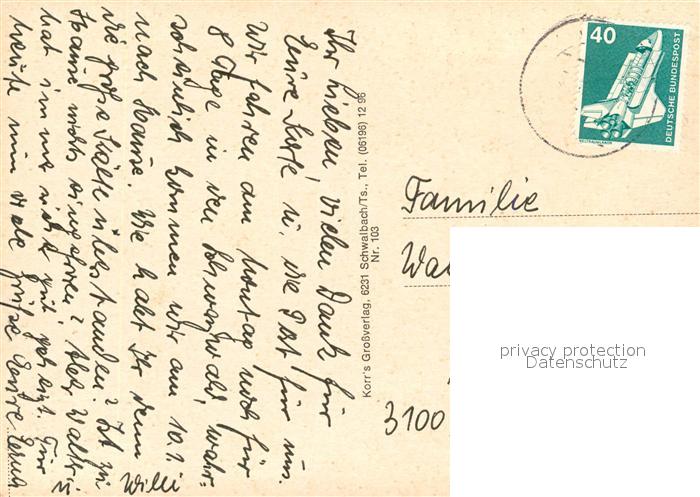 Ihr Lieben! Vielen Dank für
Eure Karte u. die Post für uns.
Wir fahren am Montag noch für
8 Tage in den Schwarzwald, wahr-
scheinlich kommen wir am 10.1.
nach Hause. Wie habt Ihr denn
die große Kälte überstanden? Ist zu
Hause nichts eingefroren? Aber Walter
hat immer gut geheizt. Für
heute nun viele Grüße Eure
u Willi
Korr's Großverlag, 6231 Schwalbach/Ts., Tel. (06196) 12 96
Nr. 103
40
DEUTSCHE BUNDESPOST
Familie
3100
privacy protection
Datenschutz